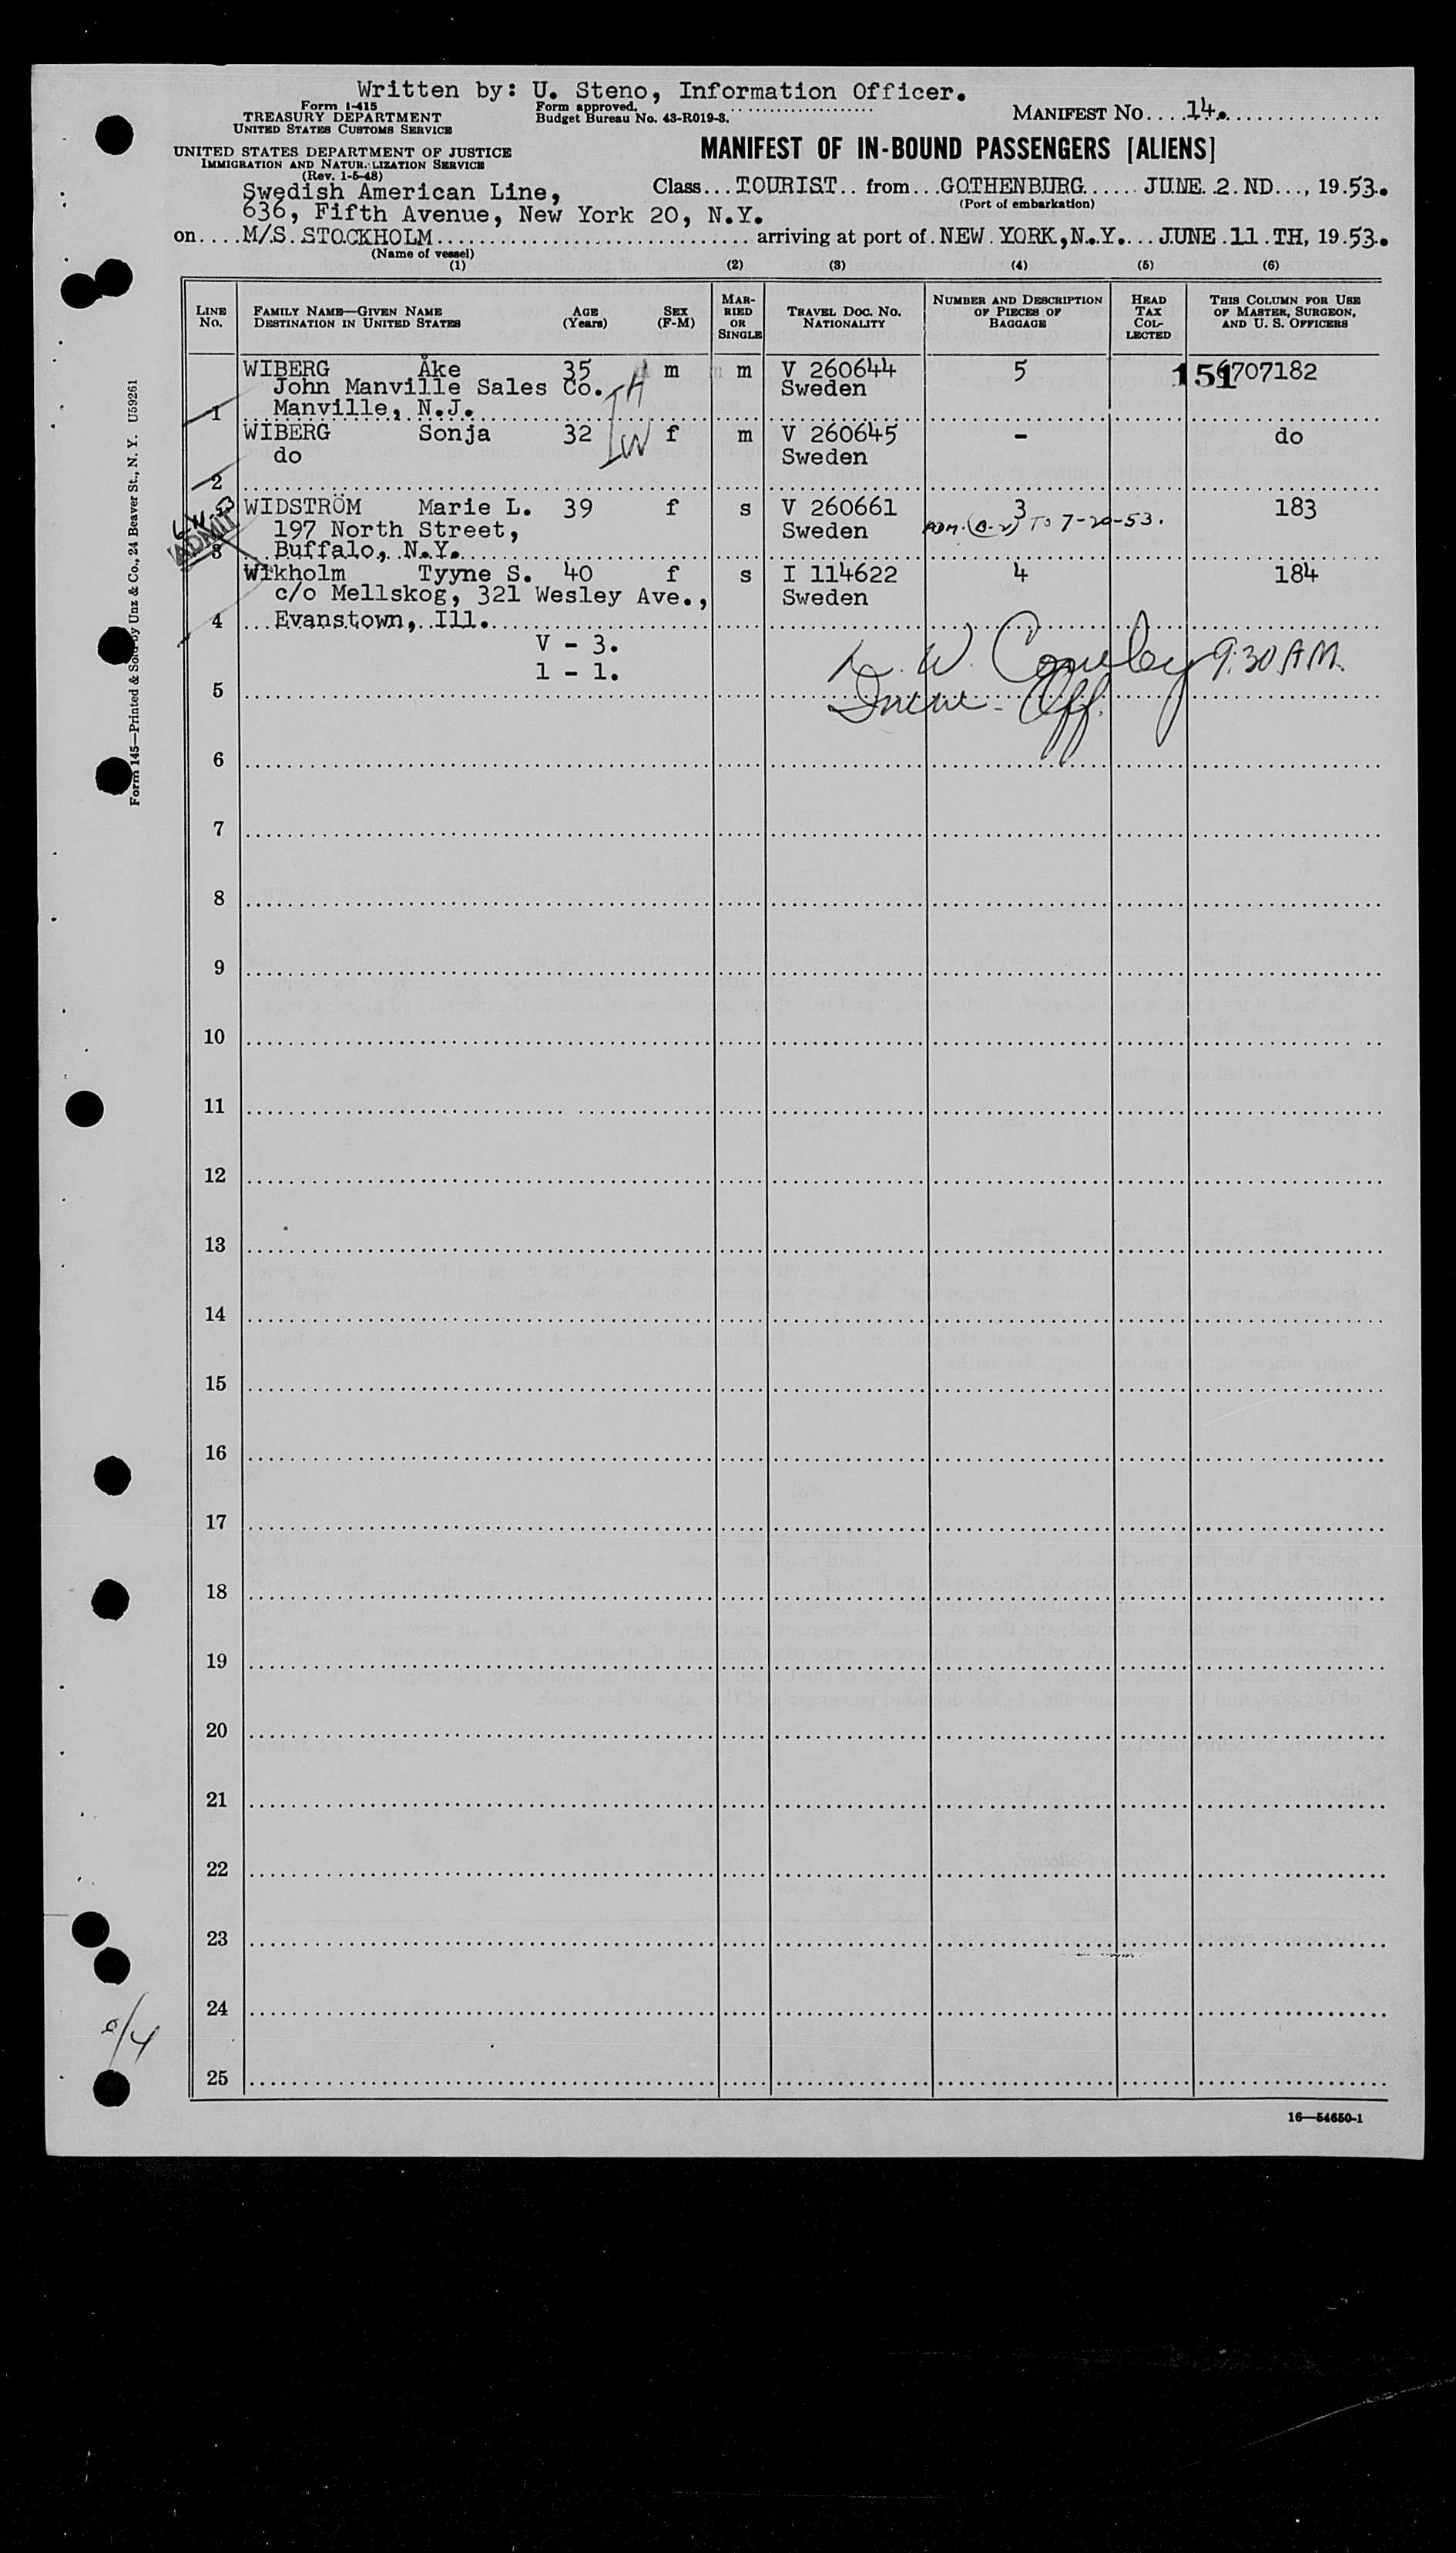 Written by: U. Steno, Information Officer.
Form I-415
TREASURY DEPARTMENT
UNITED STATES CUSTOMS SERVICE
Form approved.
Budget Bureau No. 43-R019-3.
MANIFEST NO....14.
UNITED STATES DEPARTMENT OF JUSTICE
IMMIGRATION AND NATURALIZATION SERVICE
(Rev. 1-5-48)
MANIFEST OF IN-BOUND PASSENGERS [ALIENS]
Swedish American Line,
636, Fifth Avenue, New York 20, N.Y.
Class...TOURIST.. from...GOTHENBURG...... JUNE. 2. ND..., 19.53.
(Port of embarkation)
on....M/S. STOCKHOLM.... arriving at port of. NEW YORK, N.Y.... JUNE 11 TH, 19.53.
(Name of vessel)
(1) (2) (3) (4) (5) (6)
LINE NO.
FAMILY NAME—GIVEN NAME
DESTINATION IN UNITED STATES
AGE (Years)
SEX (F-M)
MARRIED OR SINGLE
TRAVEL DOC. NO.
NATIONALITY
NUMBER AND DESCRIPTION OF PIECES OF BAGGAGE
HEAD TAX COLLECTED
THIS COLUMN FOR USE OF MASTER, SURGEON, AND U. S. OFFICERS
WIBERG Åke 35 m m V 260644 5 151 707182
John Manville Sales Co. Sweden
1 Manville, N.J.
WIBERG Sonja 32 f m V 260645 - do
do Sweden
2
WIDSTRÖM Marie L. 39 f s V 260661 3 183
197 North Street, Sweden ADM. (B-2) TO 7-20-53.
ADMIT
3 Buffalo, N.Y.
Wikholm Tyyne S. 40 f s I 114622 4 184
c/o Mellskog, 321 Wesley Ave., Sweden
4 Evanstown, Ill.
V - 3.
1 - 1.
9:30 A.M.
5
6
7
8
9
10
11
12
13
14
15
16
17
18
19
20
21
22
23
24
25
Form 145—Printed & Sold by Unz & Co., 24 Beaver St., N. Y. U59261
16—54650-1